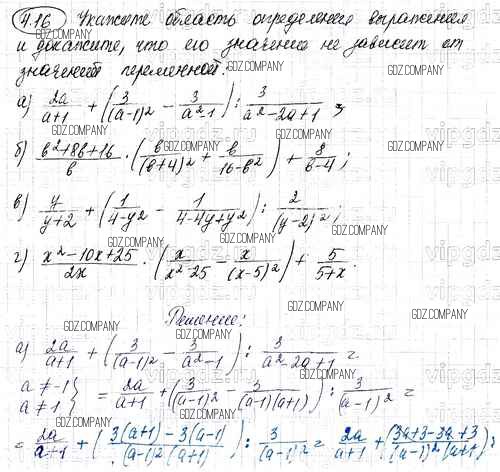 4.16 Укажите область определения выражения
и докажите, что его значение не зависит от
значений переменной:
а) 2a/(a+1) + (3/(a-1)² - 3/(a²-1)) : 3/(a²-2a+1);
б) (b²+8b+16)/b · (b/(b+4)² + b/(16-b²)) + 8/(b-4);
в) y/(y+2) + (1/(4-y²) - 1/(4-4y+y²)) : 2/(y-2)²;
г) (x²-10x+25)/2x · (x/(x²-25) - x/(x-5)²) + 5/(5+x).
Решение:
а) 2a/(a+1) + (3/(a-1)² - 3/(a²-1)) : 3/(a²-2a+1) =
a ≠ -1
a ≠ 1 } = 2a/(a+1) + (3/(a-1)² - 3/((a-1)(a+1))) : 3/(a-1)² =
= 2a/(a+1) + (3(a+1) - 3(a-1))/((a-1)²(a+1)) : 3/(a-1)² = 2a/(a+1) + (3a+3-3a+3)/((a-1)²(a+1)) :
GDZ.COMPANY
vipgdz.ru